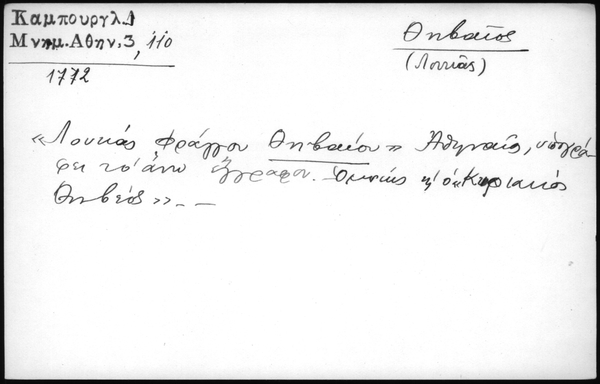 Καμπουργλ.
Μνημ.Αθην.3, 110
1772
Θηβαῖος
(Λουκᾶς)
«Λουκάς Φράγγου Θηβαίου» Ἀθηναῖος, ὑπογρά-
φει τὸ ἄνω ἔγγραφον. Ὁμοίως κ' ὁ «Κυριακός
Θηβέος» - -